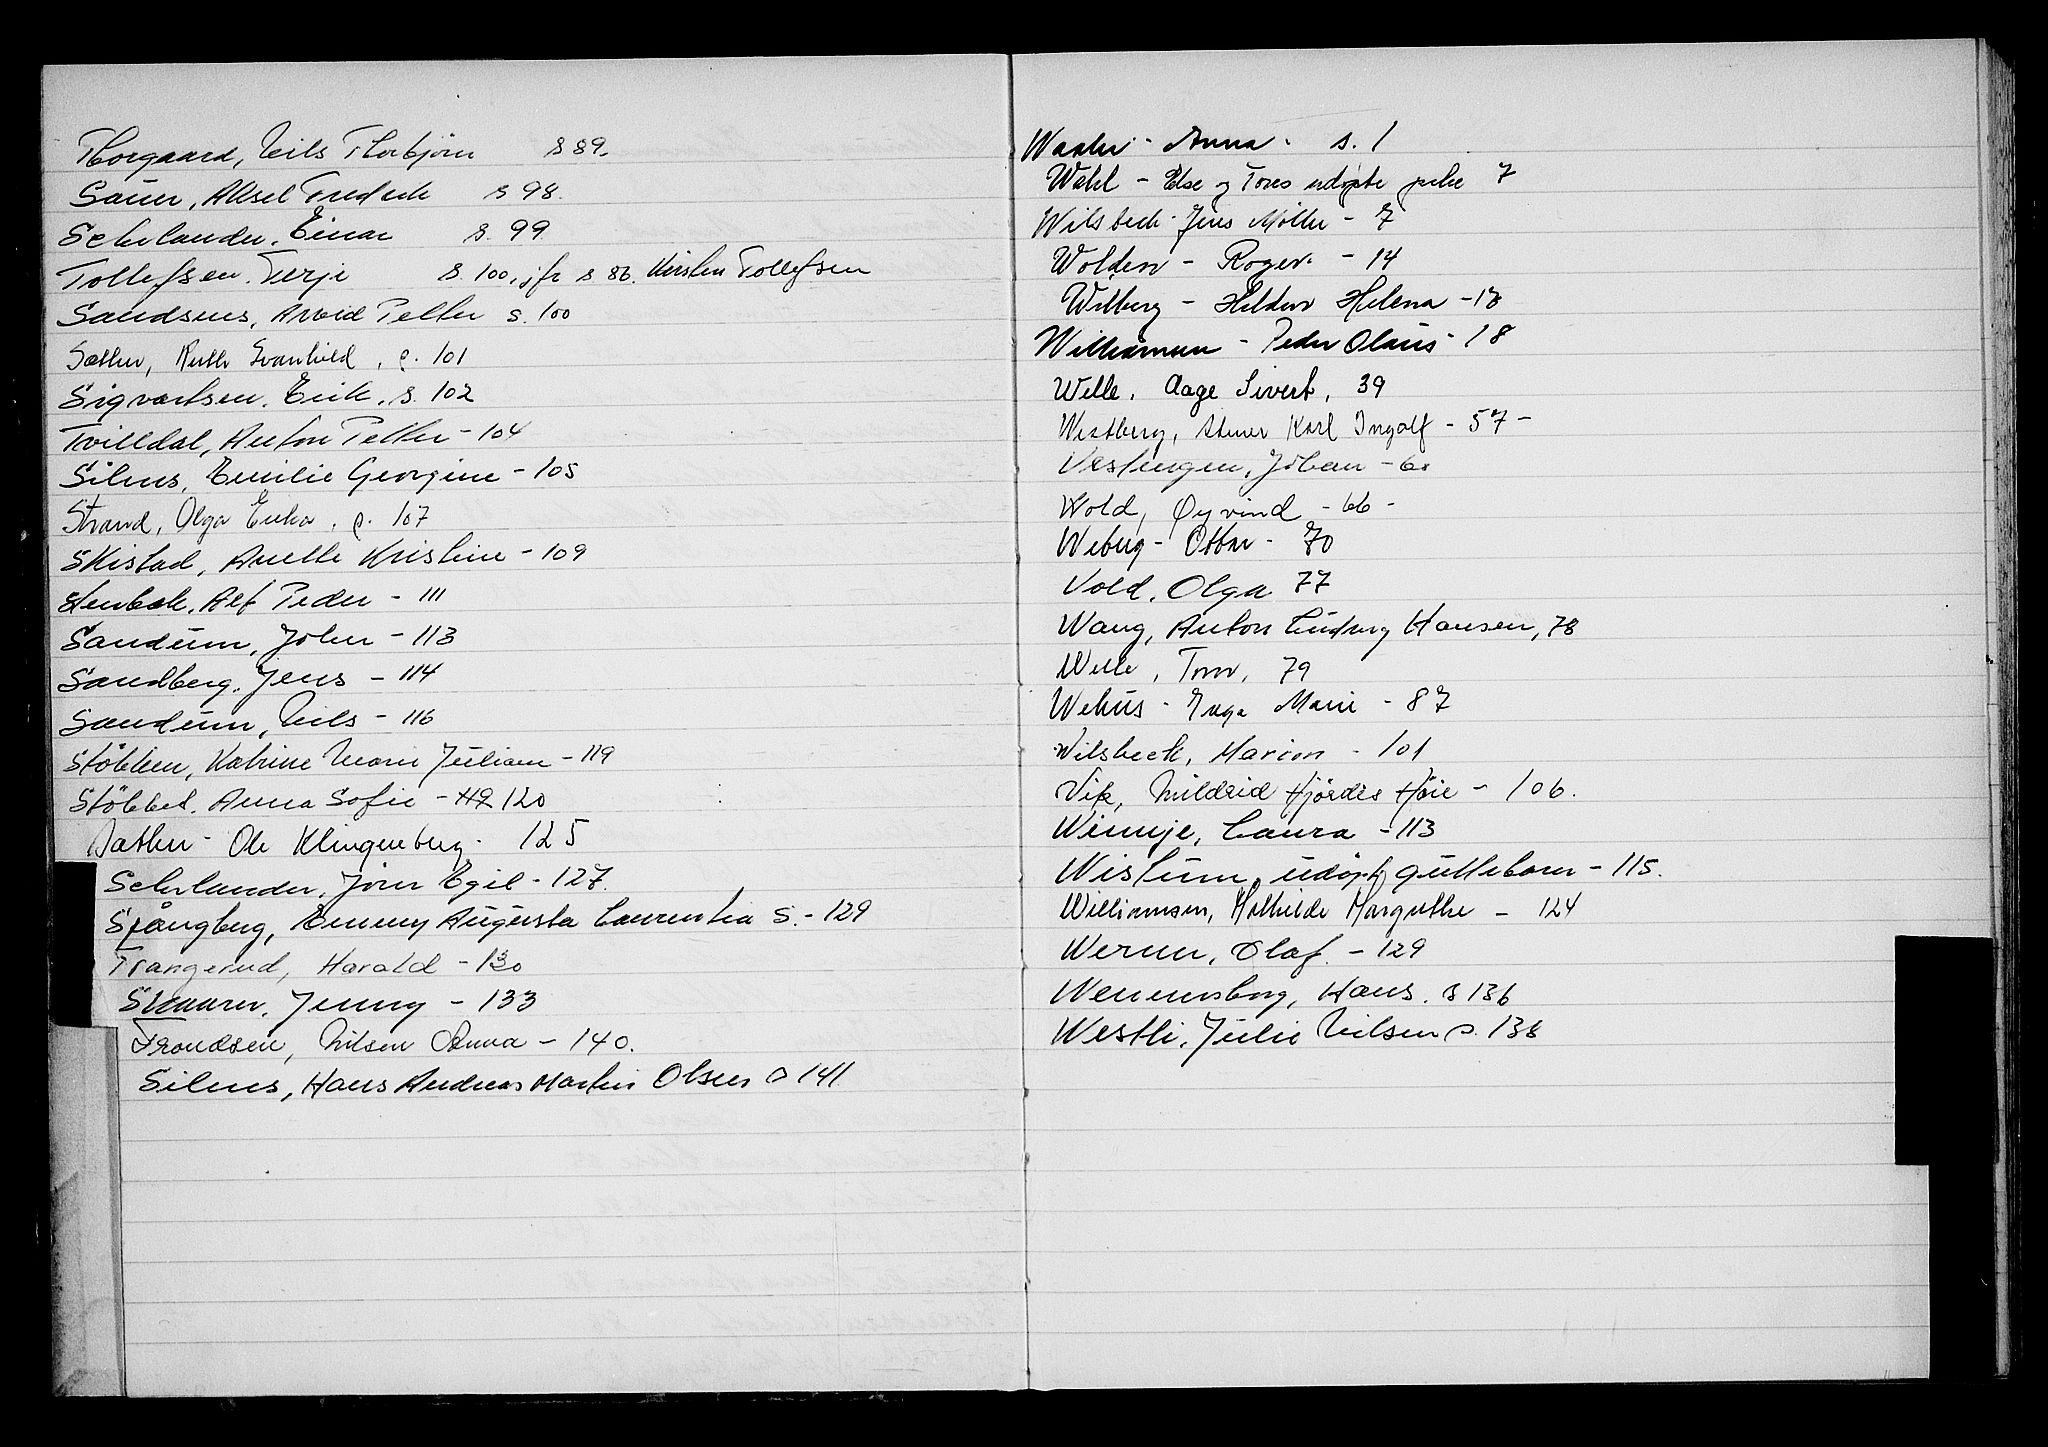 Thorgaard, Nils Thorbjörn s 89.
Sauer, Aksel Fredrik s 98.
Sehrlander, Einar s. 99
Tollefsen, Terje s. 100, jfr s 86. Kirsten Tollefsen
Sandsnes, Arvid Petter s. 100
Sæther, Ruth Svanhild, s. 101
Sigvartsen, Erik, s. 102
Tvilldal, Anton Petter - 104
Silnes, Emilie Georgine - 105
Strand, Olga Erika, s. 107
Skistad, Anette Kristine - 109
Stenbæk, Alf Peder - 111
Sandum, John - 113
Sandberg, Jens - 114
Sandum, Nils - 116
Stökken, Katrine Marie Juliane - 119
Stökket, Anna Sofie - 119 120
Sæther - Ole Klingenberg - 125
Sehrlander, Jörn Egil - 127.
Spångberg, Emmy Augusta Laurentia S. - 129
Trangerud, Harald - 130
Skaaren, Jenny - 133
Trondsen, Nilsen Anna - 140.
Silnes, Hans Andreas Martin Olsen s 141
Waaler - Anna - s. 1
Wahl - Else og Tores udöpte pike 7
Wilsbech - Jens Möller - 7
Wolden - Roger - 14
Wilberg - Helena - 18
Williamsen - Peder Olaus - 18
Welle, Aage Sivert, 39
Westberg, Steiner Karl Ingolf - 57 -
Vestengen, Johan - 60
Wold, Øyvind - 66 -
Weberg - Ottar - 70
Vold, Olga 77
Wang, Anton Ludvig Hansen, 78
Welle, Tom, 79
Wehus - Inga Marie - 87
Wilsbeck, Marion - 101
Vik, Mildrid Hjördis Höie - 106.
Winnje, Laura - 113
Wistum, udöpt guttebarn - 115.
Williamsen, Mathilde Margrethe - 124
Werner, Olaf. - 129
Wennersborg, Hans. s 136
Westli, Julie Nilsen s. 138